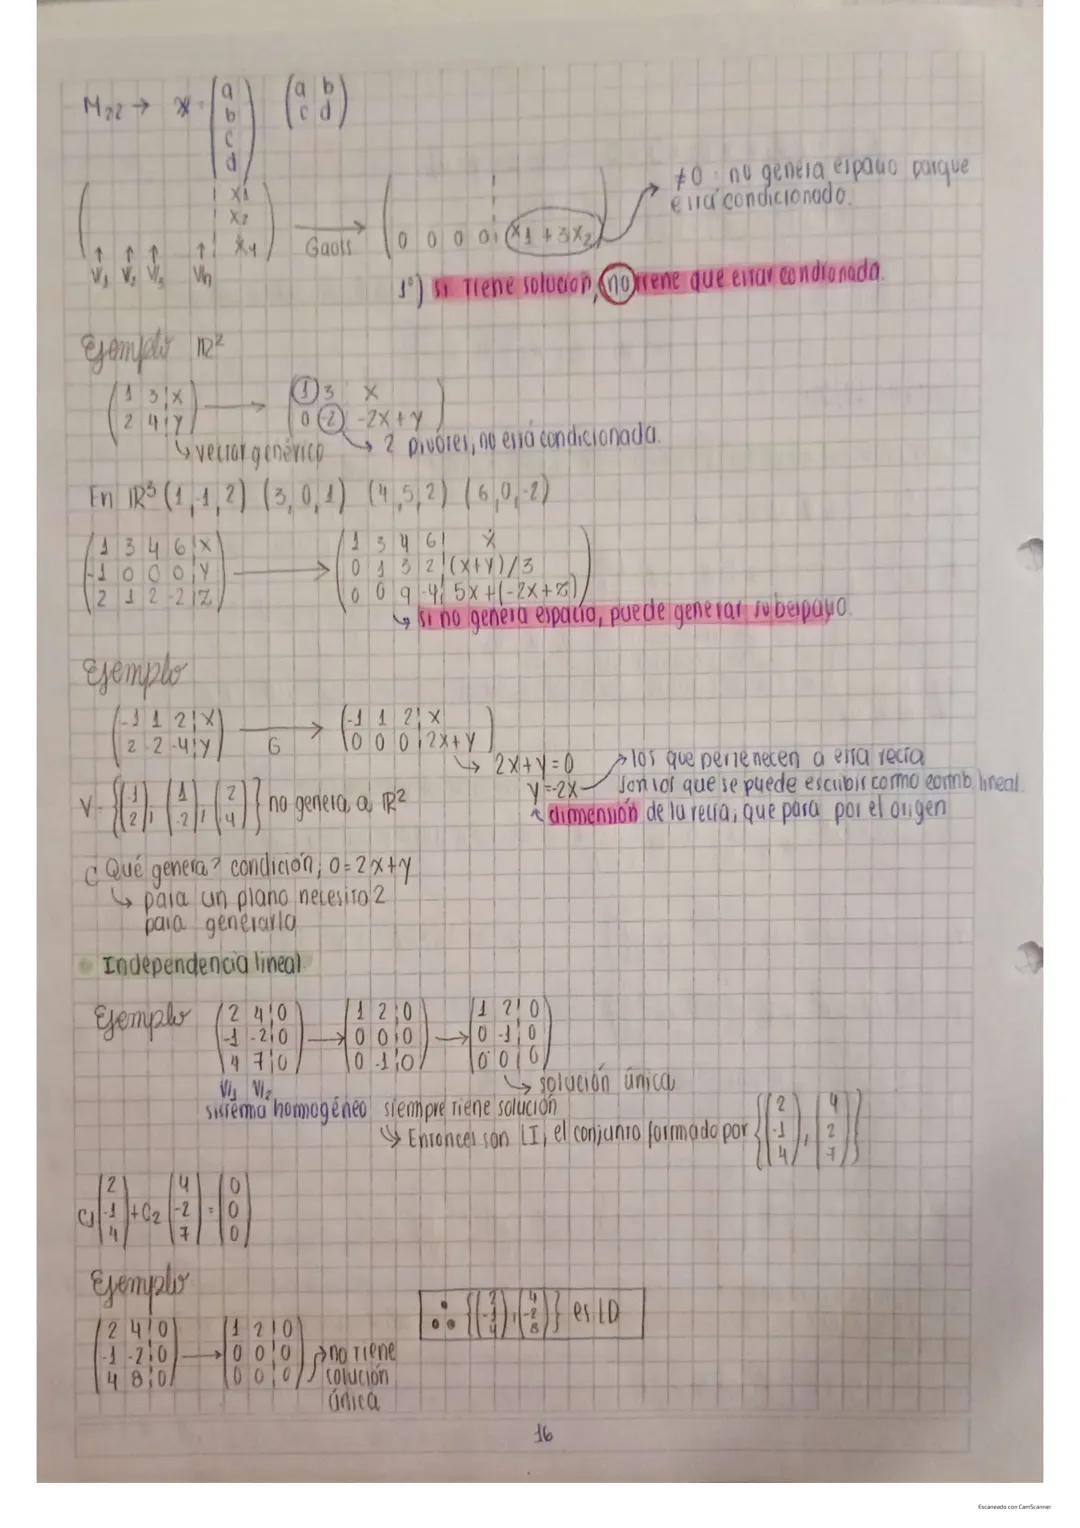 M22 → x = (a b c d) (a b
c d)
≠0 no genera espacio porque
está condicionado.
( x1
x2
x4 ) → Gauss ( 0 0 0 0 | x1 + 3x2 )
v1 v2 v3 vn
1°) si tiene solución, no tiene que estar condionada.
Ejemplo ℝ²
(1 3 | x
2 4 | y) → (1 3 x
0 -2 -2x+y)
↳ vector genérico → 2 pivotes, no está condicionada.
En ℝ³ (1,-1,2) (3,0,1) (4,5,2) (6,0,-2)
(1 3 4 6 | x
-1 0 0 0 | y
2 1 2 -2 | z) → (1 3 4 6 | x
0 1 3 2 | (x+y)/3
0 0 9 -4 | 5x+(-2x+z))
↳ si no genera espacio, puede generar subespayo.
Ejemplo
(-1 1 2 | x
2 -2 -4 | y) → G (-1 1 2 | x
0 0 0 | 2x+y)
↳ 2x+y=0
y=-2x
→ los que pertenecen a esta recta
son los que se puede escribir como comb lineal.
dimensión de la recta, que para por el origen
V = {(-1 2), (1 -2), (2 4)} no genera a ℝ²
¿Qué genera? condición, 0=2x+y
↳ para un plano necesito 2
para generarlo
• Independencia lineal
Ejemplo (2 4 | 0
-1 -2 | 0
4 7 | 0) → (1 2 | 0
0 0 | 0
0 -1 | 0) → (1 2 | 0
0 -1 | 0
0 0 | 0)
v1 v2
↳ solución única
sistema homogéneo siempre tiene solución
↳ Entonces son LI, el conjunto formado por {(2 -1 4), (4 2 7)}
C1 (2 -1 4) + C2 (4 -2 7) = (0 0 0)
Ejemplo
(2 4 | 0
-1 -2 | 0
4 8 | 0) → (1 2 | 0
0 0 | 0
0 0 | 0) → no tiene
solución
única
∴ {(2 -1 4), (4 -2 8)} es LD
16
Escaneado con CamScanner